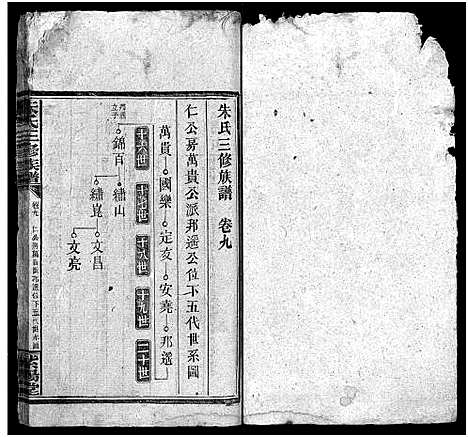 朱氏三修族譜 卷九
仁公房萬貴公派邦遥公位下五代世系圖
萬貴 國樂 定亥 安堯 邦遥
十六世 十七世 十八世 十九世 二十世
錦百 繡山
繡崑 文昌
文亮
朱氏三修族譜 卷九